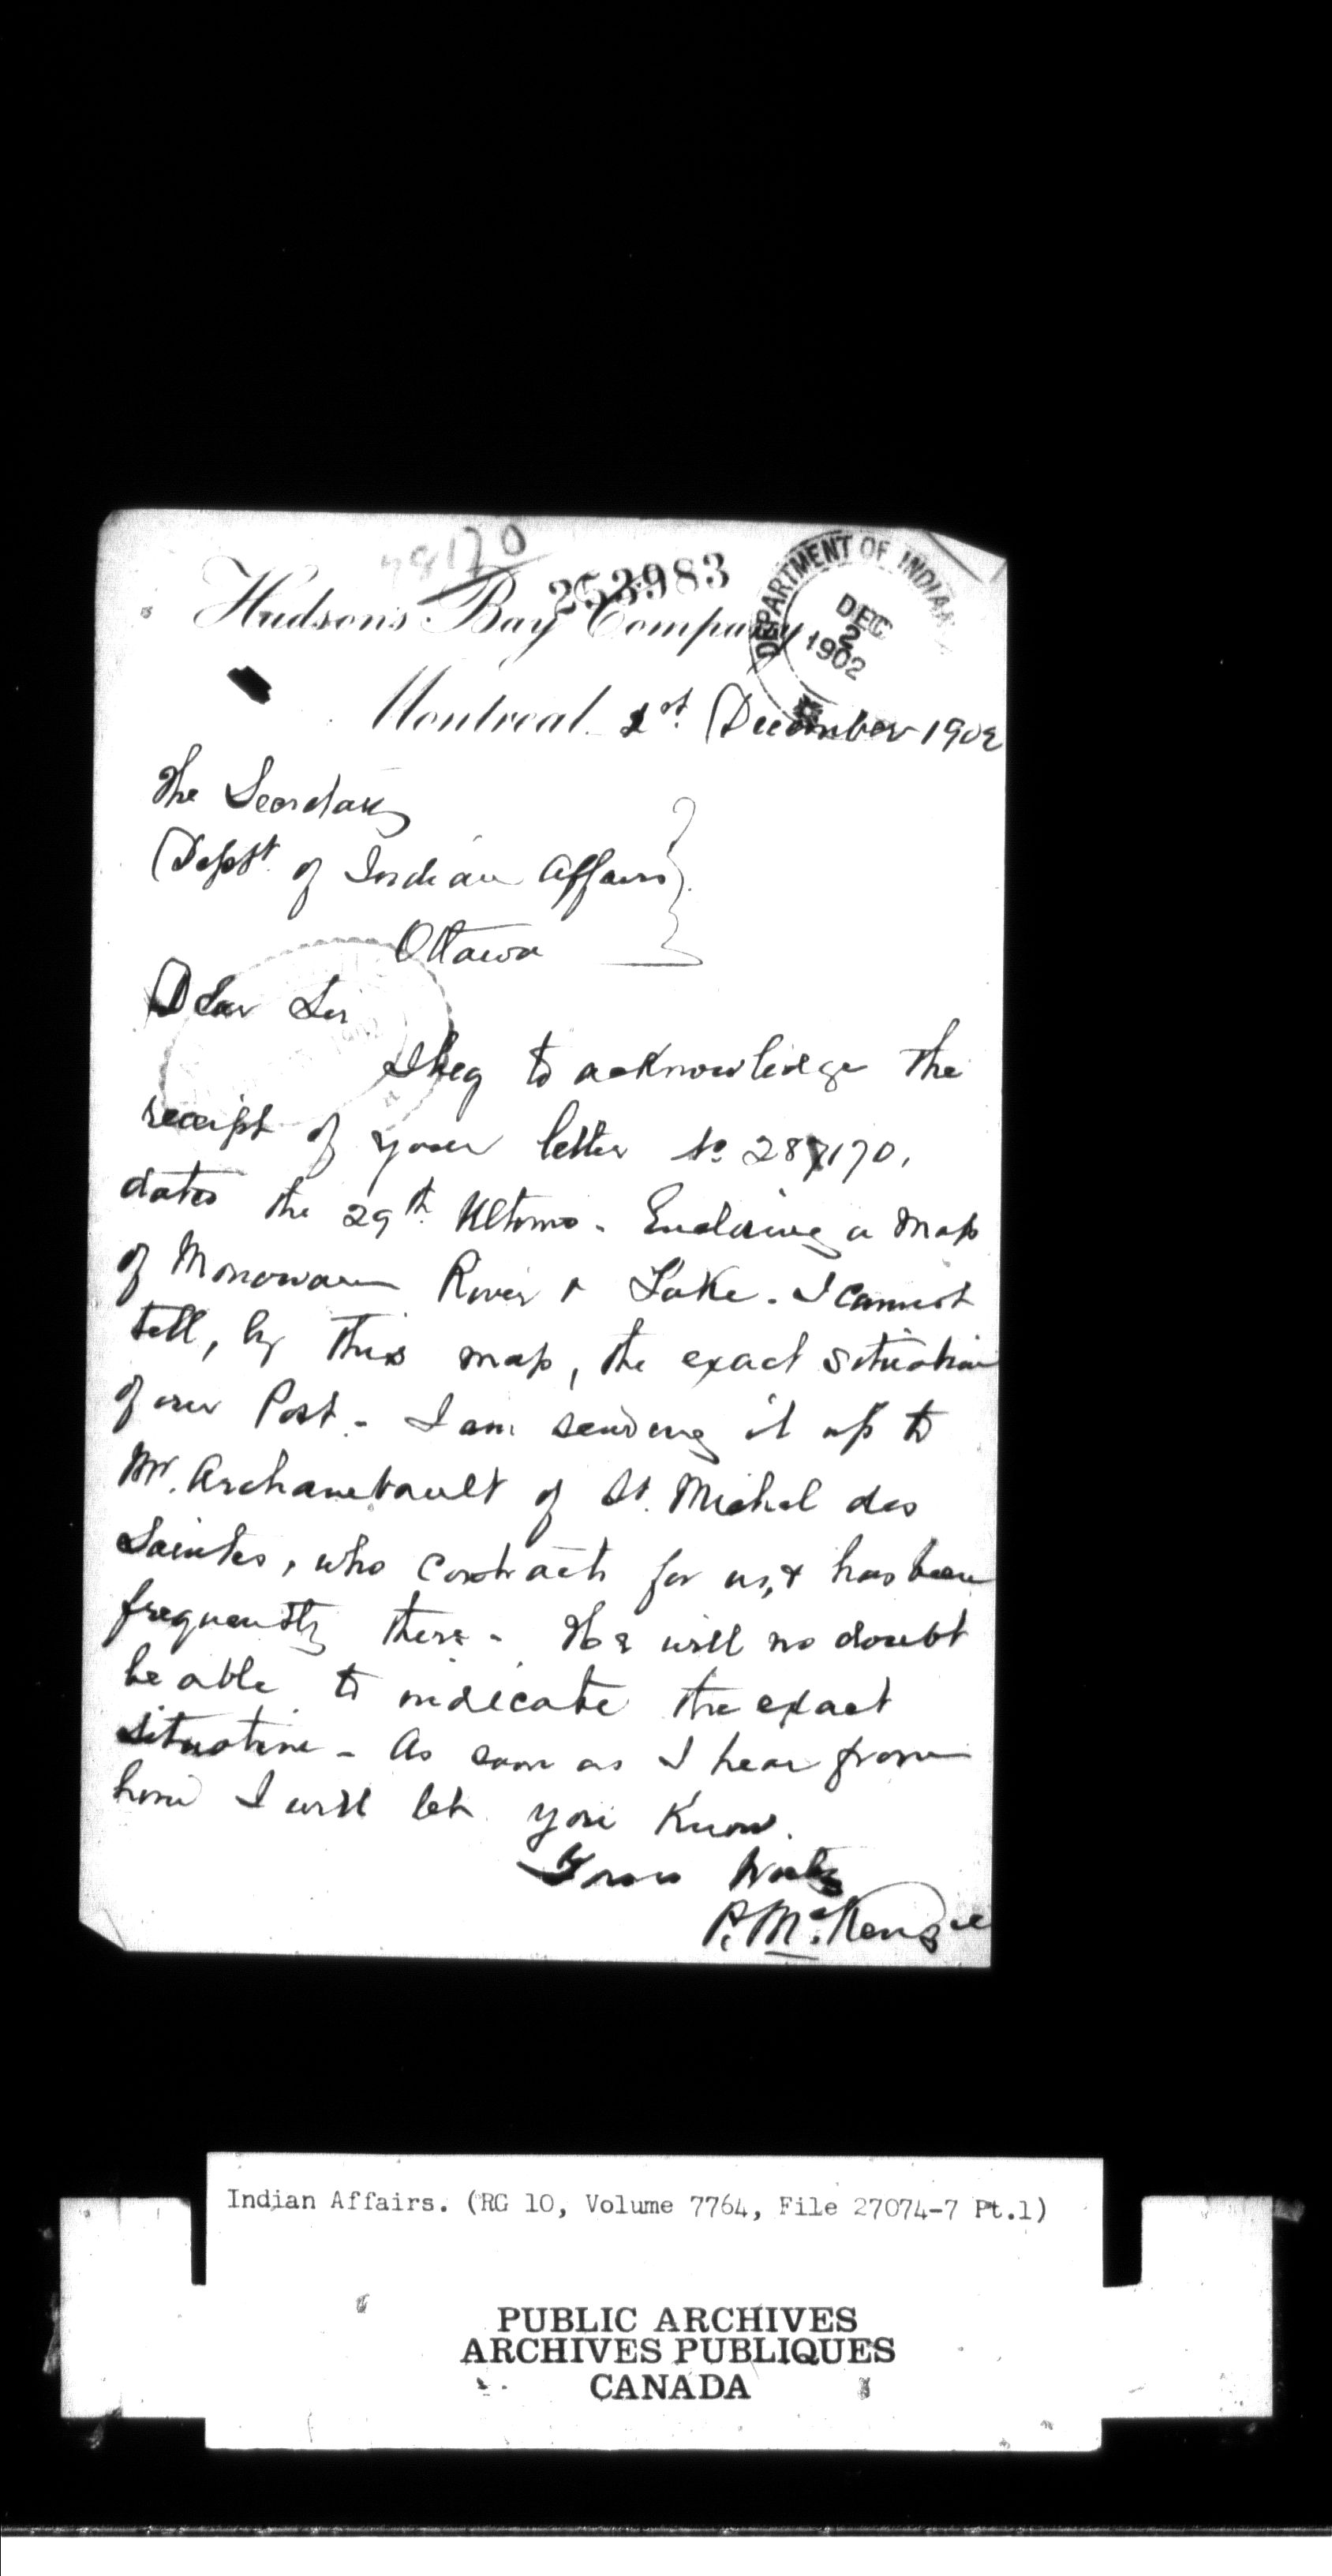 28170
253983
Hudson's Bay Company
DEPARTMENT OF INDIAN
DEC
2
1902
Montreal 1st. December 1902
The Secretary
Deptt. of Indian Affairs
Ottawa
Dear Sir
I beg to acknowledge the
receipt of your letter No 28170,
dated the 29th. Ultimo - Enclosing a Map
of Manowan River & Lake. I cannot
tell, by this map, the exact situation
of our Post. - I am sending it up to
Mr. Archambault of St. Michel des
Saintes, who contracts for us, & has been
frequently there - He will no doubt
be able to indicate the exact
situation - As soon as I hear from
him I will let you Know.
Yours truly
P. McKenzie
Indian Affairs. (RG 10, Volume 7764, File 27074-7 Pt.1)
PUBLIC ARCHIVES
ARCHIVES PUBLIQUES
CANADA